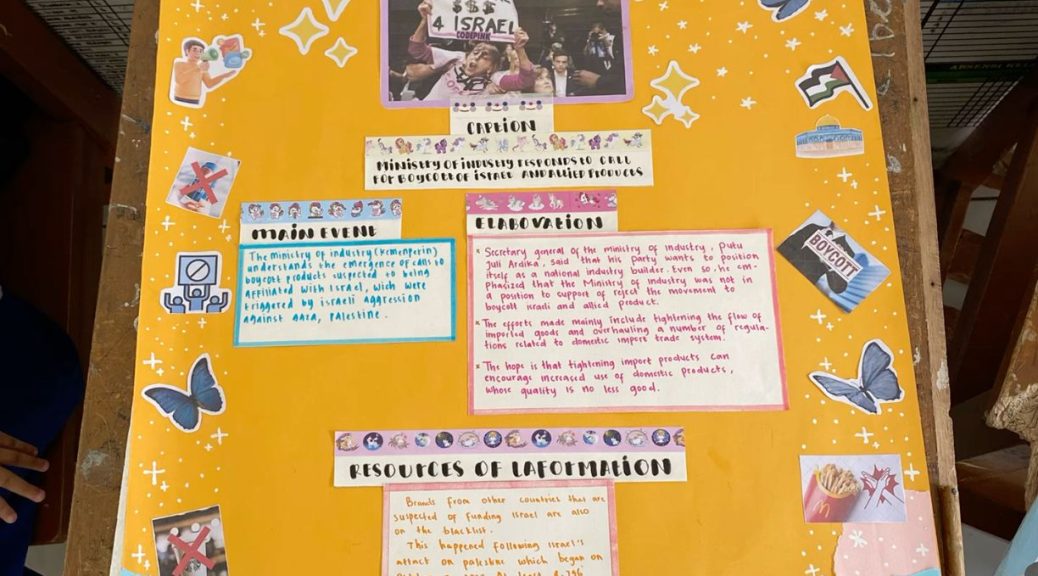 $$$
4 ISRAEL
CODEPINK
CAPTION
MINISTRY OF INDUSTRY RESPONDS TO CALL
FOR BOYCOTT OF ISRAEL AND ALLIED PRODUCTS
MAIN EVENE
The ministry of industry (kemenperin)
understands the emergence of calls to
boycott products suspected to being
affiliated with Israel, wich were
triggered by israeli aggression
against GAZA, Palestine.
ELABOVATION
Secretary general of the ministry of industry, putu
Juli Ardika, said that his party wants to position
itself as a national industry builder. Even so, he em-
phacized that the Ministry of industry was not in
a position to support of reject the movement to
boycott israeli and allied product.
The efforts made mainly include tightening the flow of
imported goods and overhauling a number of regula-
tions related to domestic import trade system.
The hope is that tightening import products can
encourage increased use of domestic products,
whose quality is no less good.
BOYCOTT
RESOURCES OF LAFORMATION
Brands from other countries that are
suspected of funding Israel are also
on the blacklist.
This happened following Israel's
attack on palestine which began on